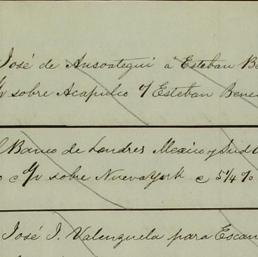 José de Ansoategui a Esteban Be
sobre Acapulco Esteban Bene
Banco de Londres Mexico y Sud A
sobre Nueva York 5 1/4 %
José J. Valenzuela para Escan